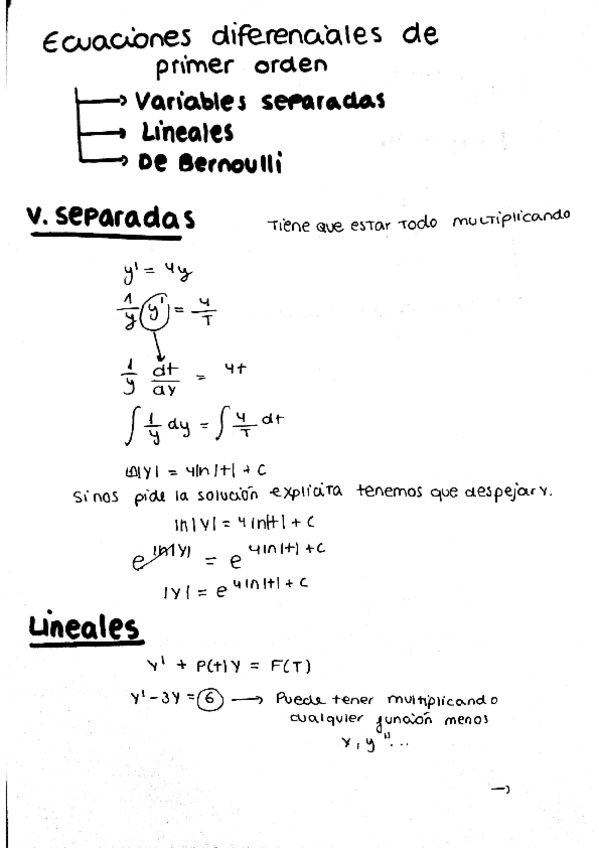 Ecuaciones diferenciales de
primer orden
→ Variables separadas
→ Lineales
→ De Bernoulli
V. separadas
Tiene que estar todo multiplicando
y' = 4y
1/y y' = 4/T
1/y dt/dy = 4t
∫ 1/y dy = ∫ 4/T dt
ln|y| = 4ln|t| + c
Si nos pide la solución explicita tenemos que despejar y.
ln|y| = 4ln|t| + c
e^ln|y| = e^4ln|t|+c
|y| = e^4ln|t|+c
Lineales
y' + P(t)y = F(T)
y' - 3y = 6 → Puede tener multiplicando
cualquier función menos
x, y''...
→